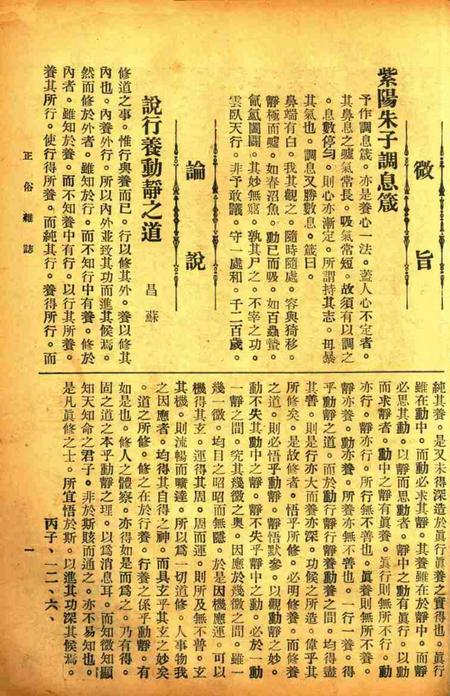 徵旨
紫陽朱子調息箴
予作調息箴。亦是養心一法。蓋人心不定者。
其鼻息之噓氣常長。吸氣常短。故須有以調之
。息數停勻。則心亦漸定。所謂持其志。毋暴
其氣也。調息又勝數息。箴曰。
鼻端有白。我其觀之。隨時隨處。容與猗移。
靜極而噓。如春沼魚。動已而吸。如百蟲蟄。
氤氳闔闢。其妙無窮。孰其尸之。不宰之功。
雲臥天行。非予敢議。守一處和。千二百歲。
論說
說行養動靜之道
昌蘇
修道之事。惟行與養而已。行以修其外。養以修其
內也。內養外行。所以內外並致其功而進其候焉。
然而修於外者。雖知於行。而不知行中有養。修於
內者。雖知於養。而不知養中有行。以行其所養。
養其所行。使行得所養。而純其行。養得所行。而
正俗雜誌
純其養。是又未得深造於眞行眞養之實得也。眞行
雖在動中。而動必求其靜。其養雖在於靜中。而靜
必思其動。以靜而思動者。靜中之動有眞行。以動
而求靜者。動中之靜有眞養。眞行則無所不行。動
亦行。靜亦行。所行無不善也。眞養則無所不養。
靜亦養。動亦養。所養亦無不善也。一行一養。善
乎動靜之道。而於動行靜養動養靜養之間。均得盡
其善。則是行亦大而養亦深。功候之所造。偉乎其
所修矣。是故修者。悟乎所修。必明修養。而修養
之道。則必悟乎動靜。靜悟默參。以觀動靜之妙。
動不失其動中之靜。靜不失乎靜中之動。必於一動
一靜之間。究其幾微之奧。因應於幾微之間。雖一
幾一微。均日之昭昭而無隱。於是因機應運。可以
機得其玄。運得其周。周而運。則所及無不普。玄
其機。則流暢而曠達。所以爲一切道修。人事物我
之因應者。均得其自得之神。而具玄乎其玄之妙矣
。道之所修。修之在於行養。行養之係乎動靜。有
如是也。修人之體察。亦得如是而爲之。乃有得。
固之道之本乎動靜之理。以爲消息耳。而知微知顯
知天知命之君子。非於斯賅而通之。亦不易知也。
是凡眞修之士。所宜悟於斯。以進其功深其候焉。
丙子、一二、六、
一